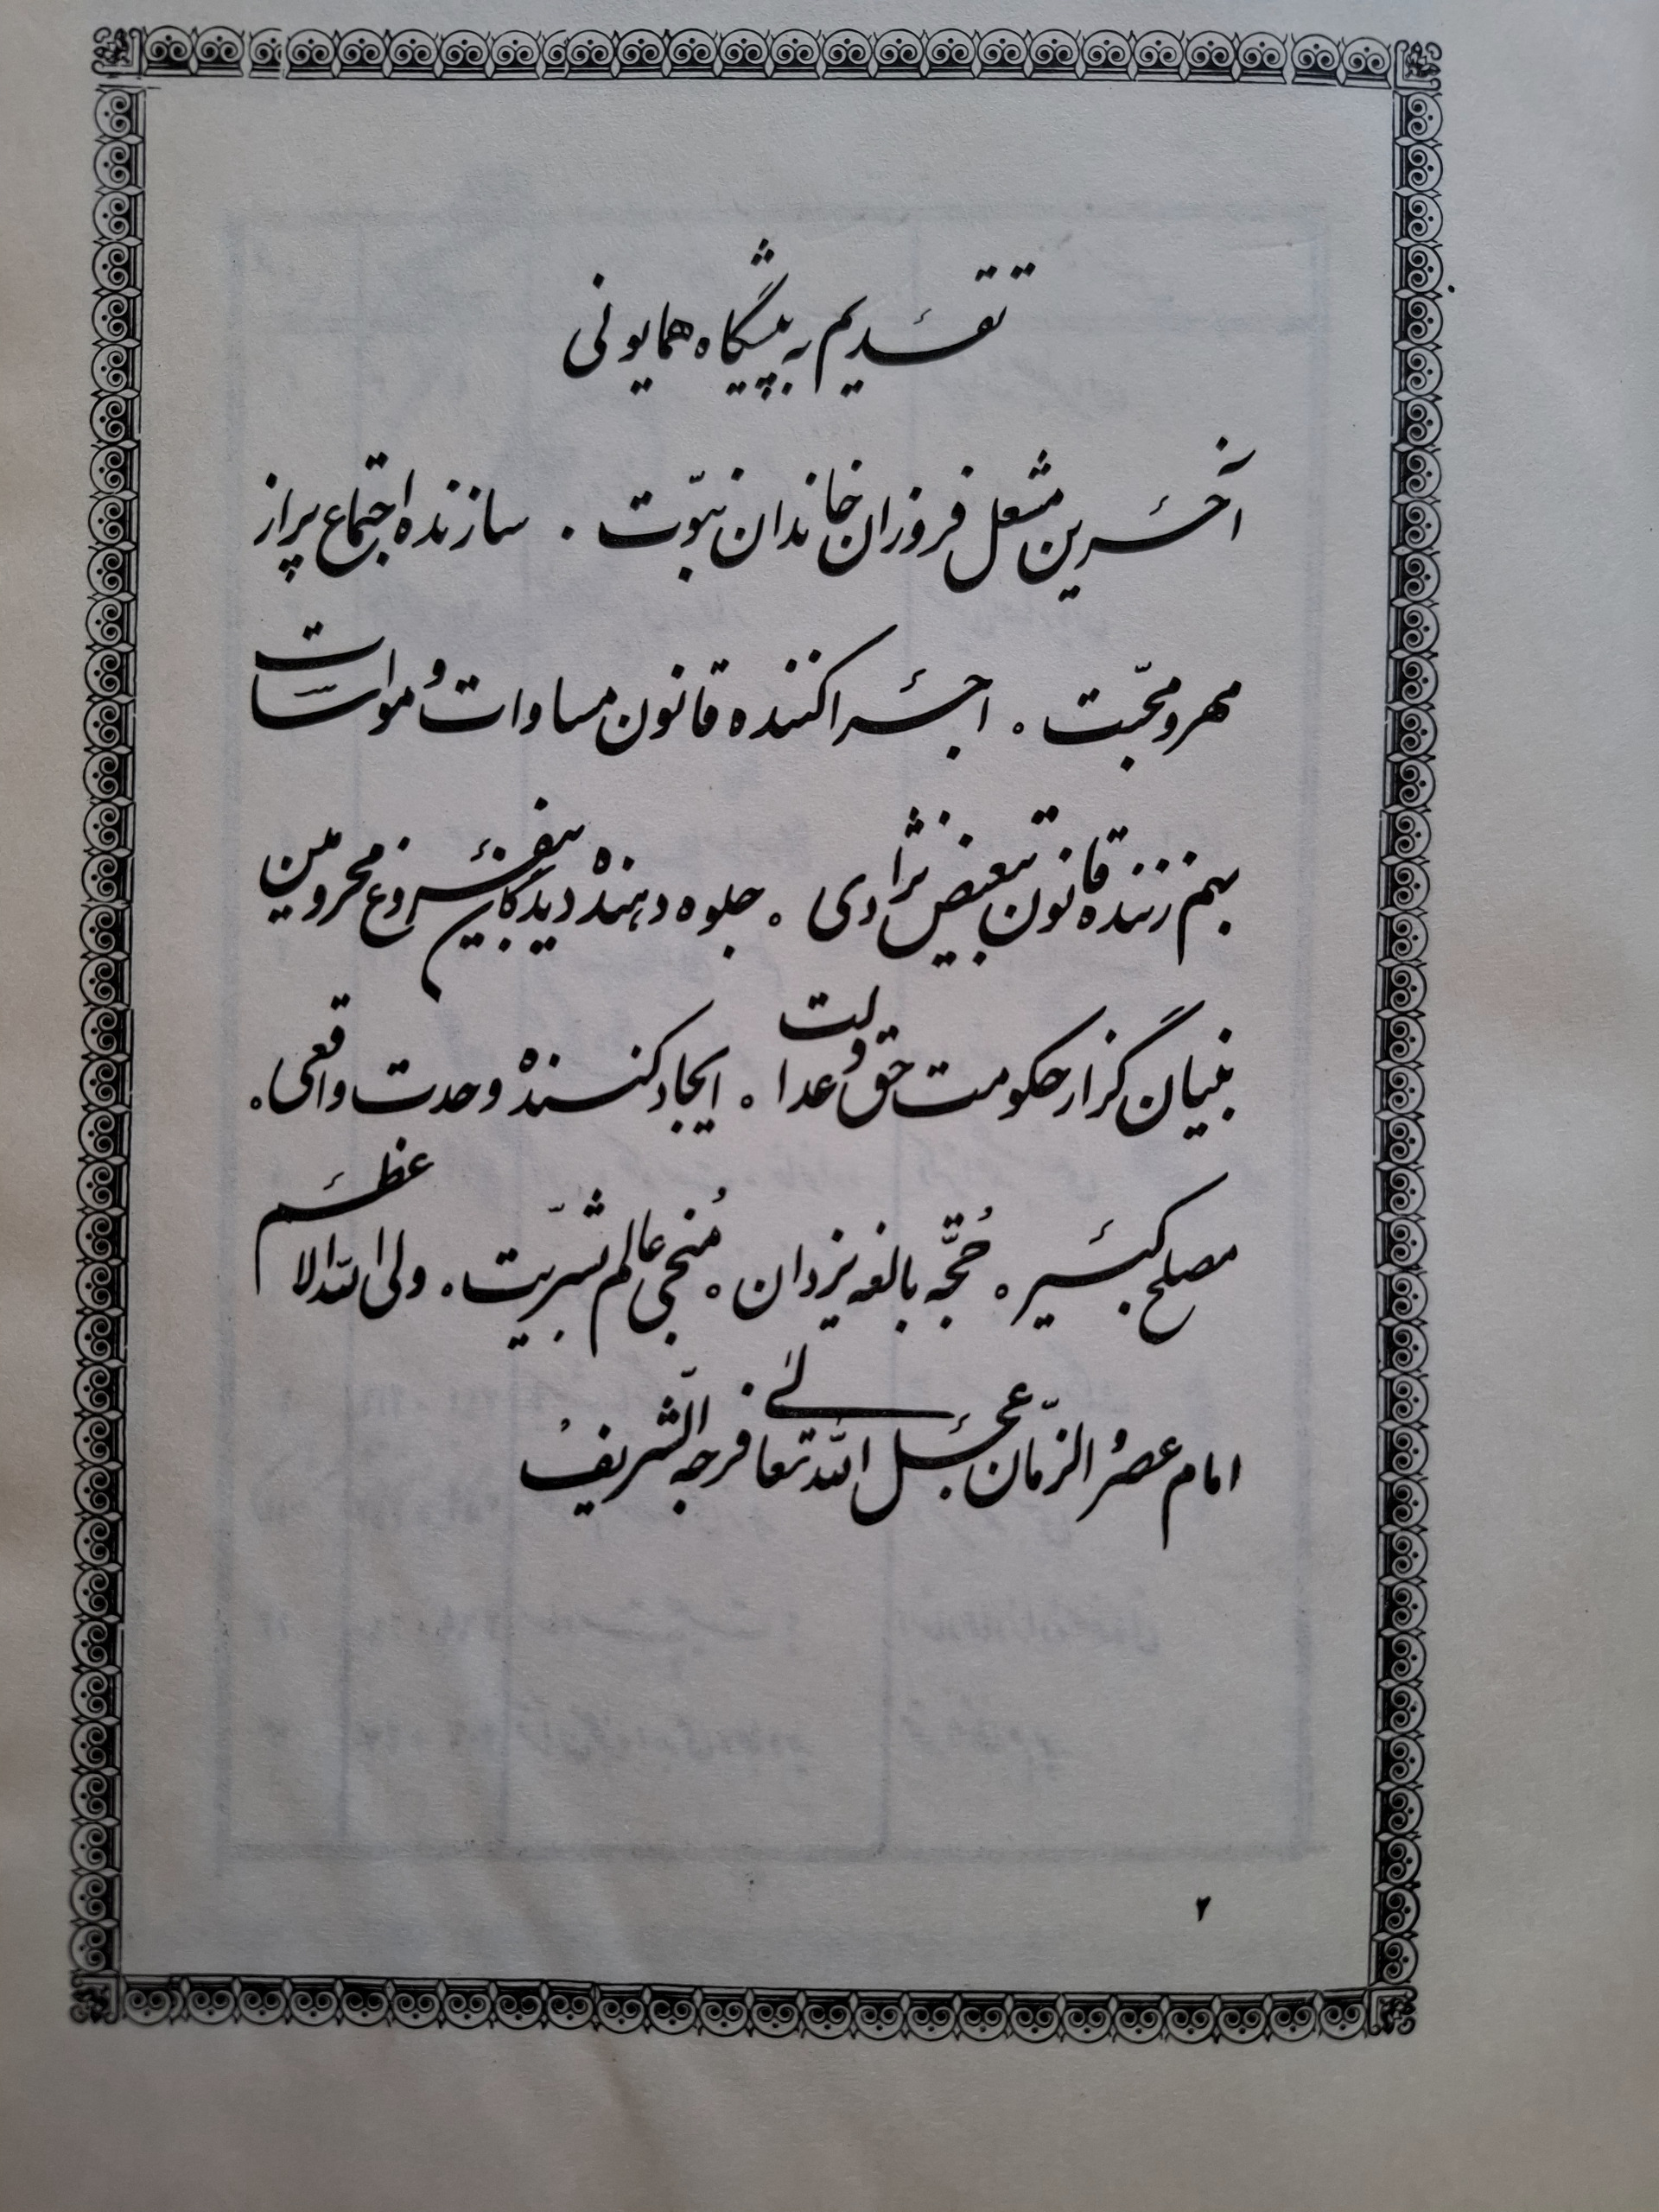 تقدیم به پیشگاه همایونی
آخرین مشعل فروزان خاندان نبوّت . سازنده اجتماع پر از
مهر و محبّت . اجرا کننده قانون مساوات و مواسات
بهم زننده قانون تبعیض نژادی . جلوه دهنده دیدگان بیفروغ محرومین
بنیان گزار حکومت حق و عدالت . ایجاد کننده وحدت واقعی .
مصلح کبیر . حُجّه بالغه یزدان . مُنجی عالم بشریّت . ولی الله الاعظم
امام عصرُ الزّمان عجل الله تعالی فرجه الشّریفُ
۲